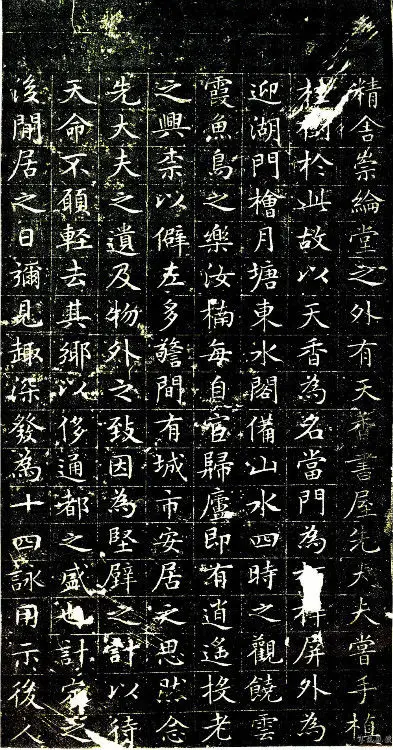 精舍崇綸堂之外有天香書屋先大夫嘗手植
桂樹於此故以天香為名當門為屏外為
迎湖門檜月塘東水閣備山水四時之觀饒雲
霞魚鳥之樂汝楠每自官歸廬即有逍遙投老
之興柰以僻左多警間有城市安居之思然念
先大夫之遺及物外之致因為堅壁之計以待
天命不願輕去其鄉以侈通都之盛也計之
後閒居之日彌見趣深發為十四詠用示後人